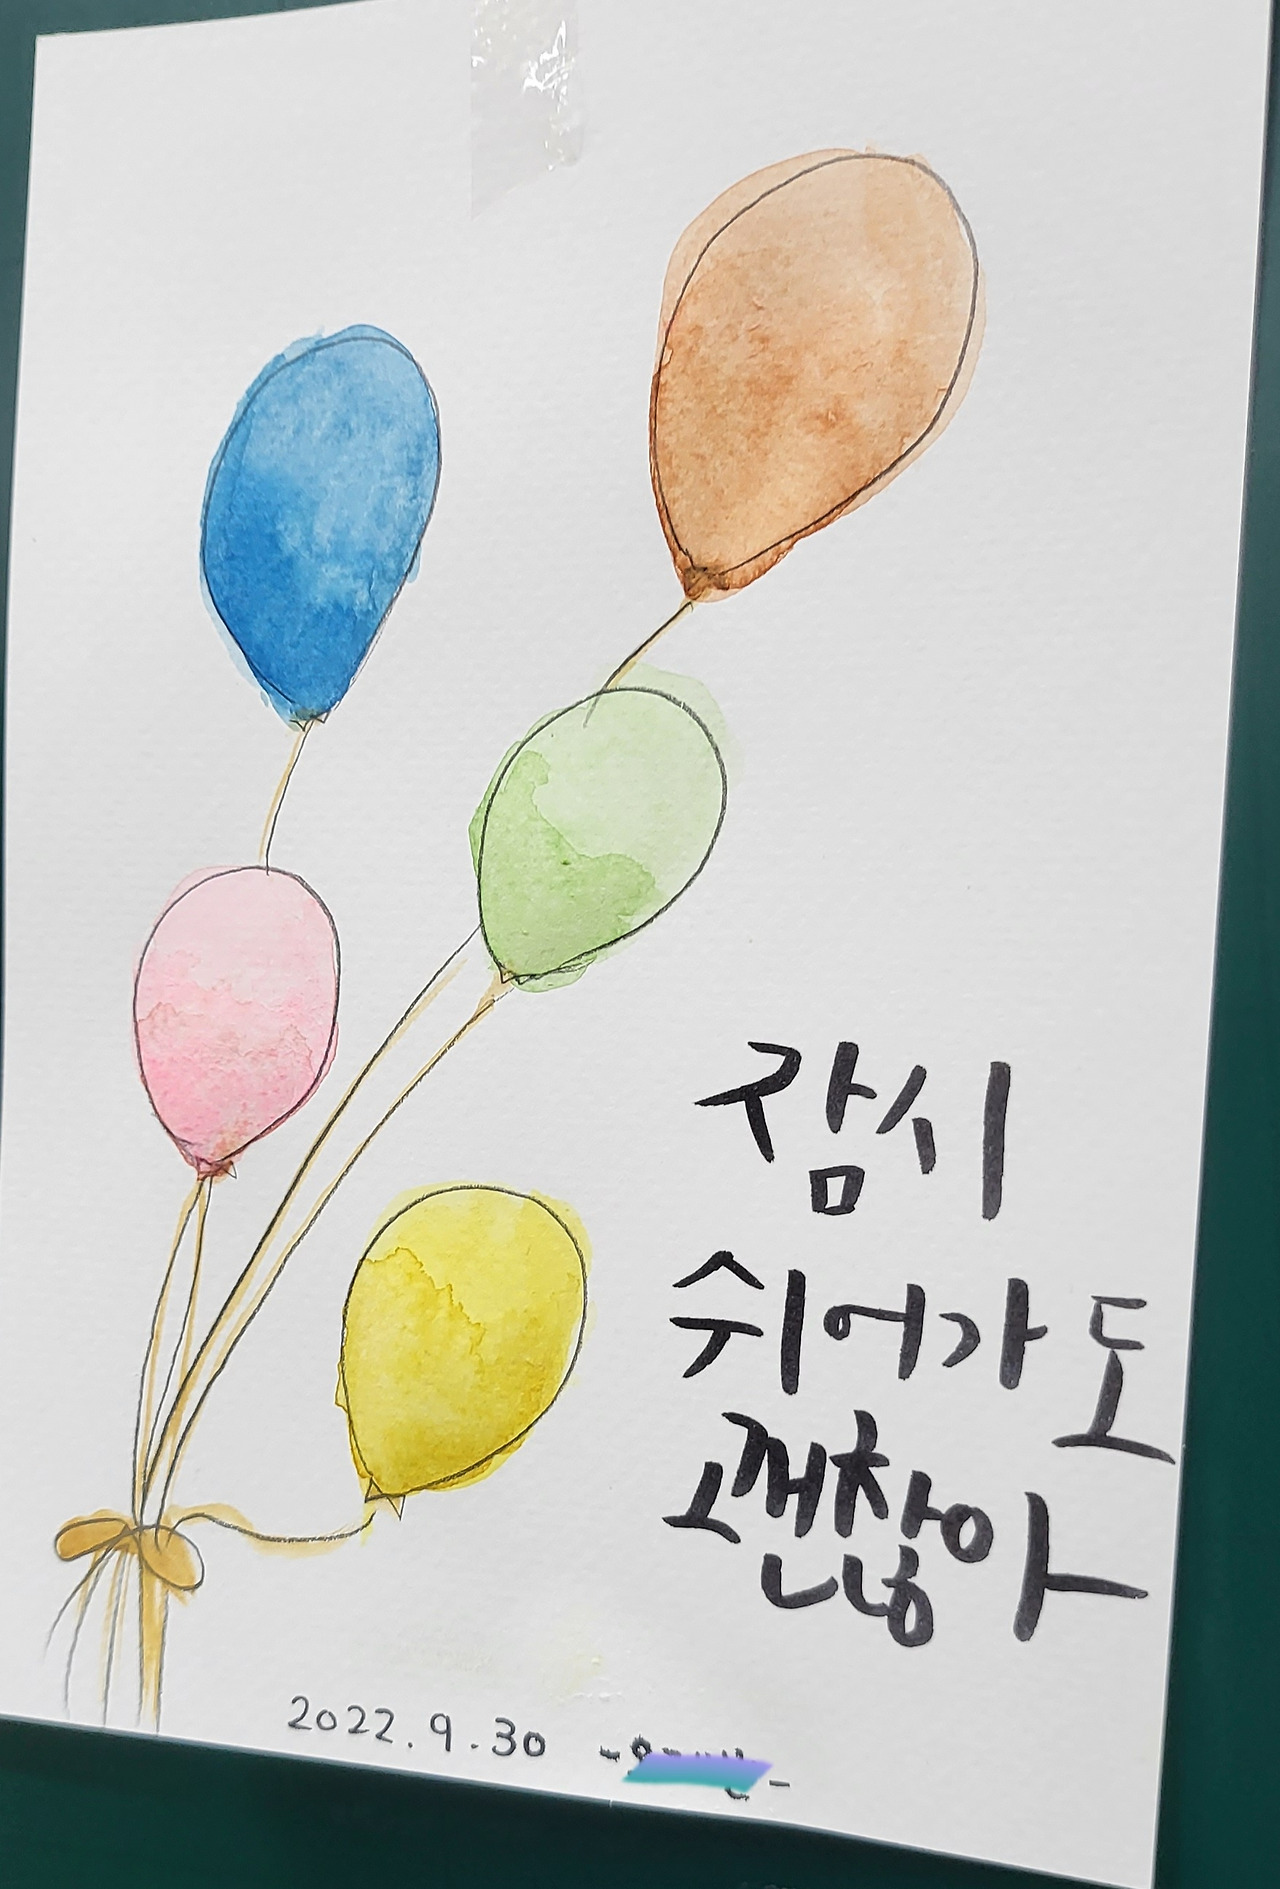 잠시
쉬어가도
괜찮아
2022.9.30